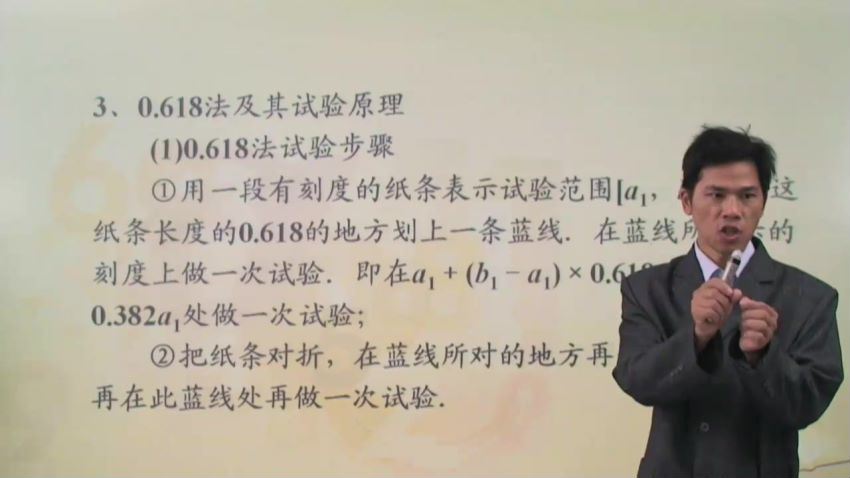 3、0.618法及其试验原理
(1)0.618法试验步骤
①用一段有刻度的纸条表示试验范围[a₁, 这
纸条长度的0.618的地方划上一条蓝线. 在蓝线所 的
刻度上做一次试验. 即在a₁ + (b₁ − a₁) × 0.618
0.382a₁处做一次试验;
②把纸条对折，在蓝线所对的地方再
再在此蓝线处再做一次试验.